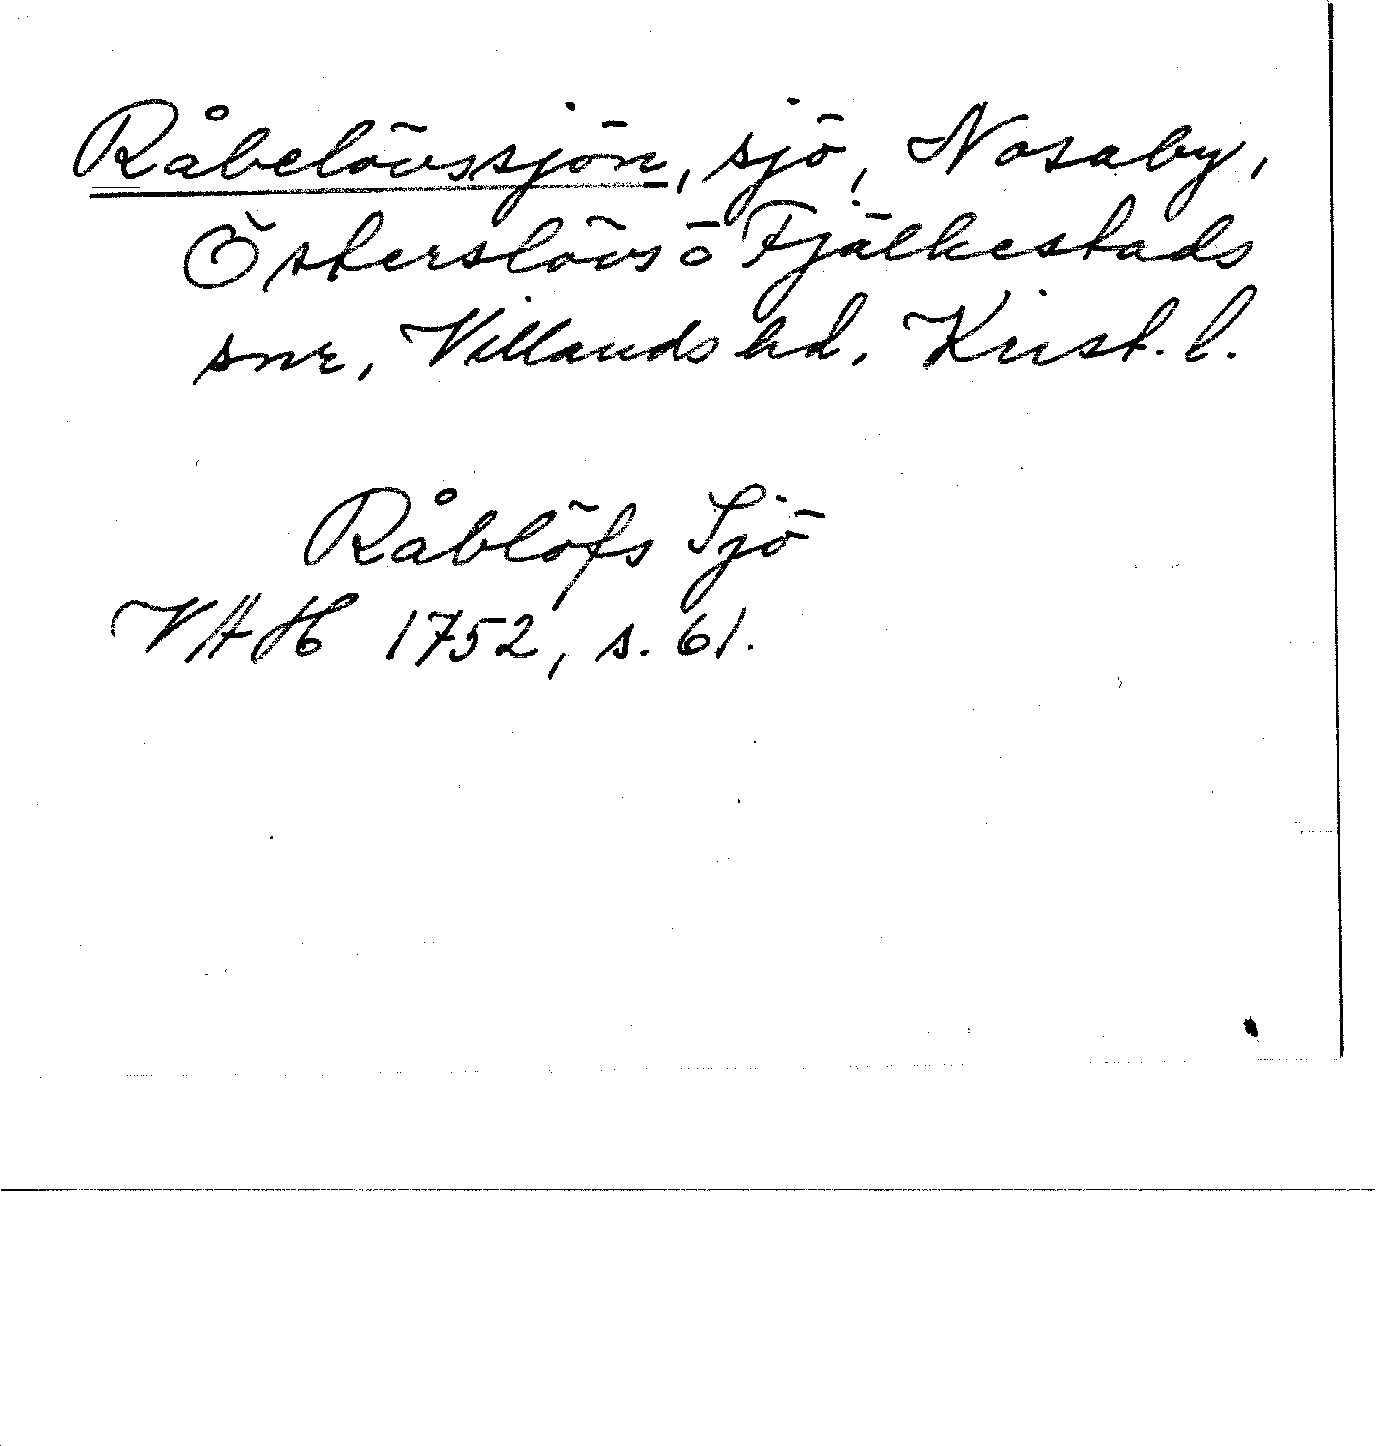 Råbelövssjön, sjö, Nosaby,
Österslövs o Fjälkestads
snr, Villands hd, Krist. l.
Råblöfs Sjö
VAH 1752, s. 61.